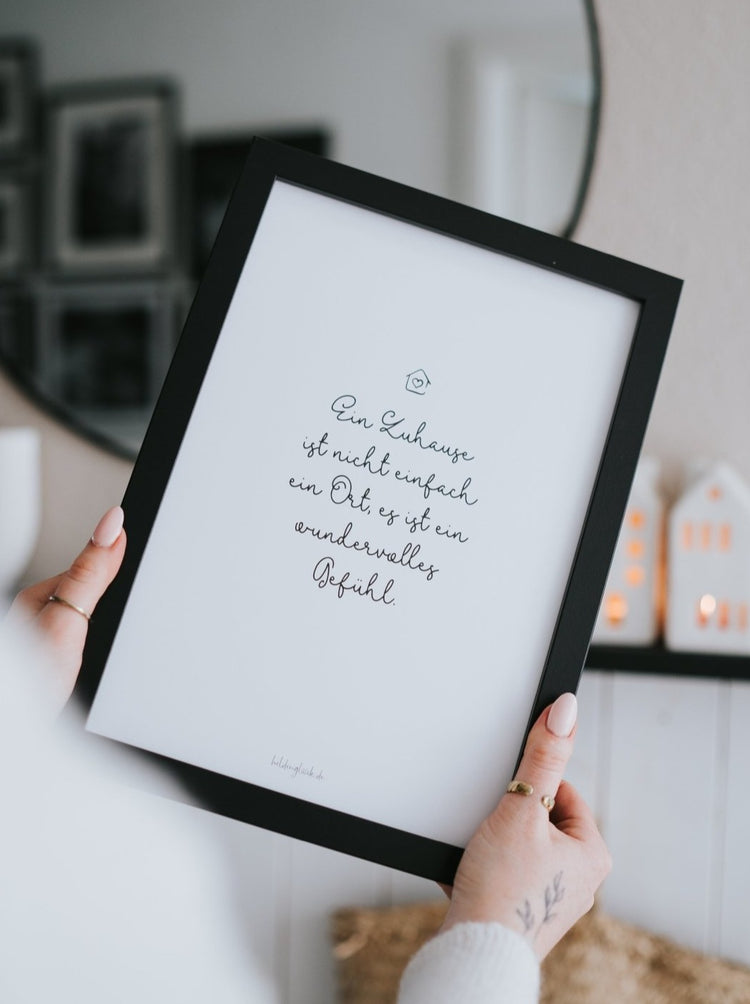 Ein Zuhause
ist nicht einfach
ein Ort, es ist ein
wundervolles
Gefühl.
heldenglück.de